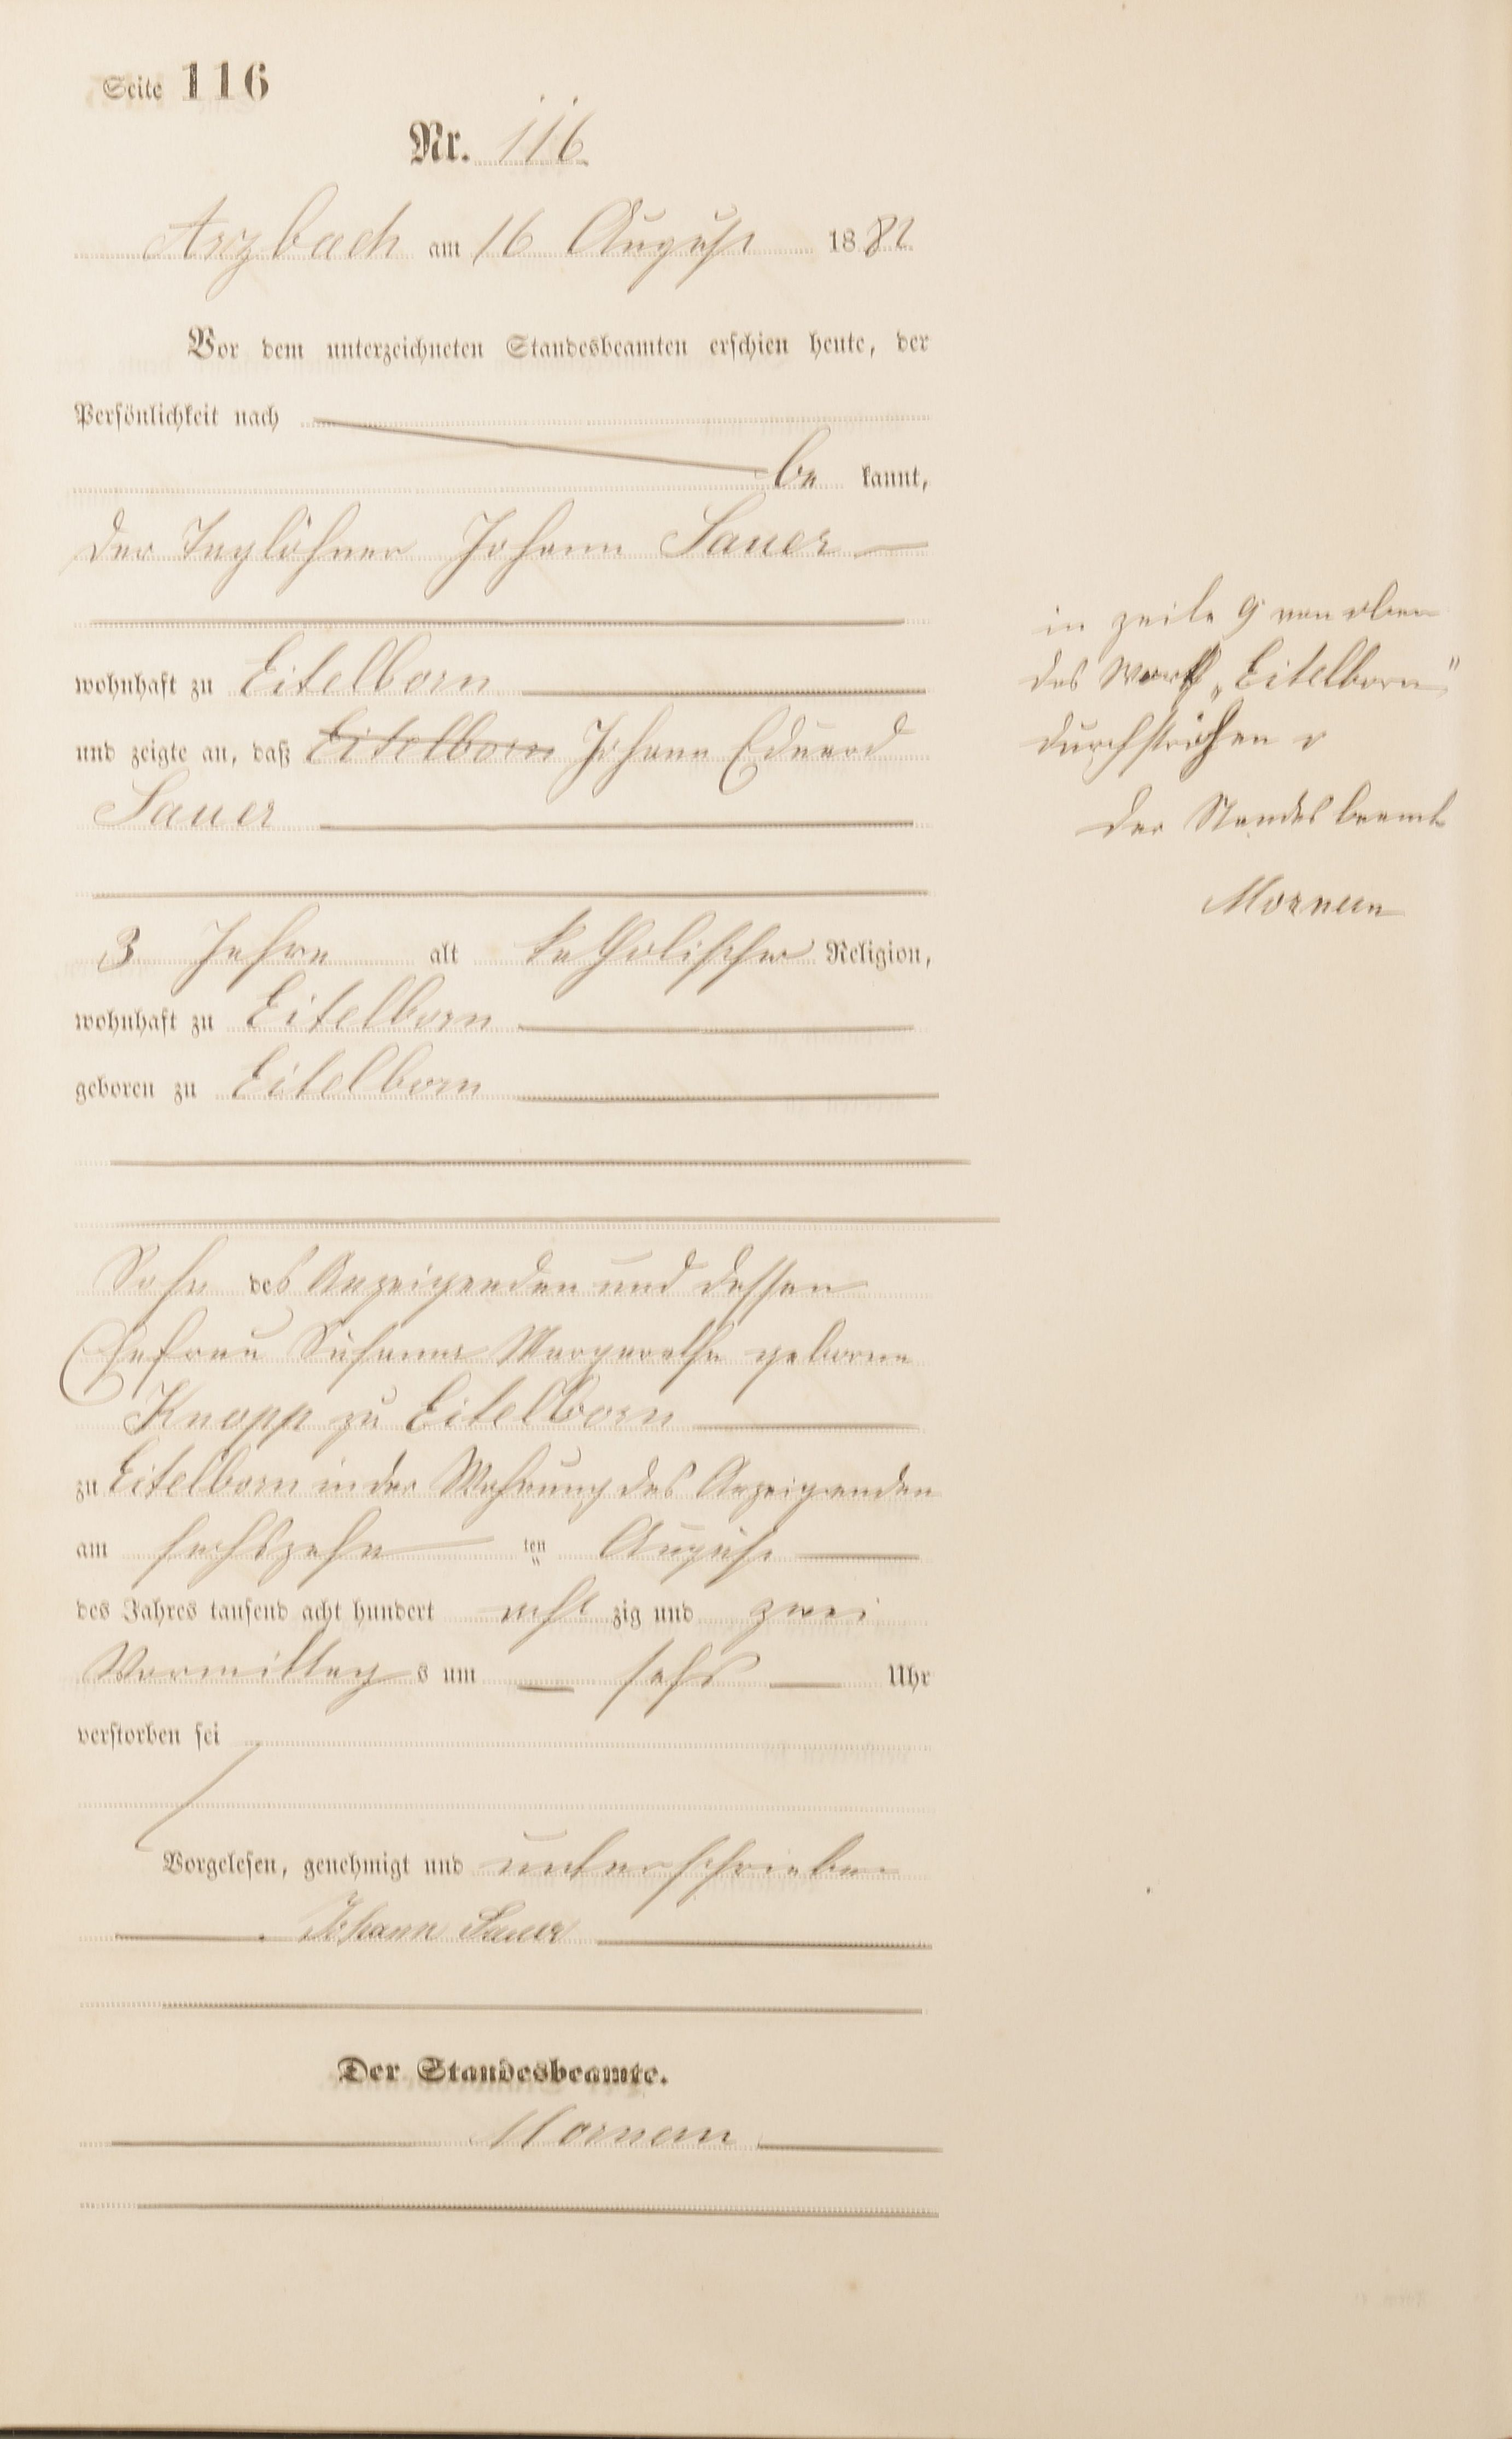 Seite 116
Nr. 116
Arzbach am 16 August 1882
Vor dem unterzeichneten Standesbeamten erschien heute, der
Persönlichkeit nach
be kannt,
der Taglöhner Johann Sauer
wohnhaft zu Eitelborn
und zeigte an, daß Eitelborn Johann Eduard
Sauer
3 Jahre alt katholischer Religion,
wohnhaft zu Eitelborn
geboren zu Eitelborn
Sohn des Anzeigenden und dessen
Ehefrau Susanna Margarethe geborene
Knopp zu Eitelborn
zu Eitelborn in der Wohnung des Anzeigenden
am sechszehn ten August
des Jahres tausend acht hundert acht zig und zwei
Vormittag s um sechs Uhr
verstorben sei
Vorgelesen, genehmigt und unterschrieben
Johann Sauer
Der Standesbeamte.
in Zeile 9 von oben
das Wort „Eitelborn"
durchstrichen
Der Standesbeamte